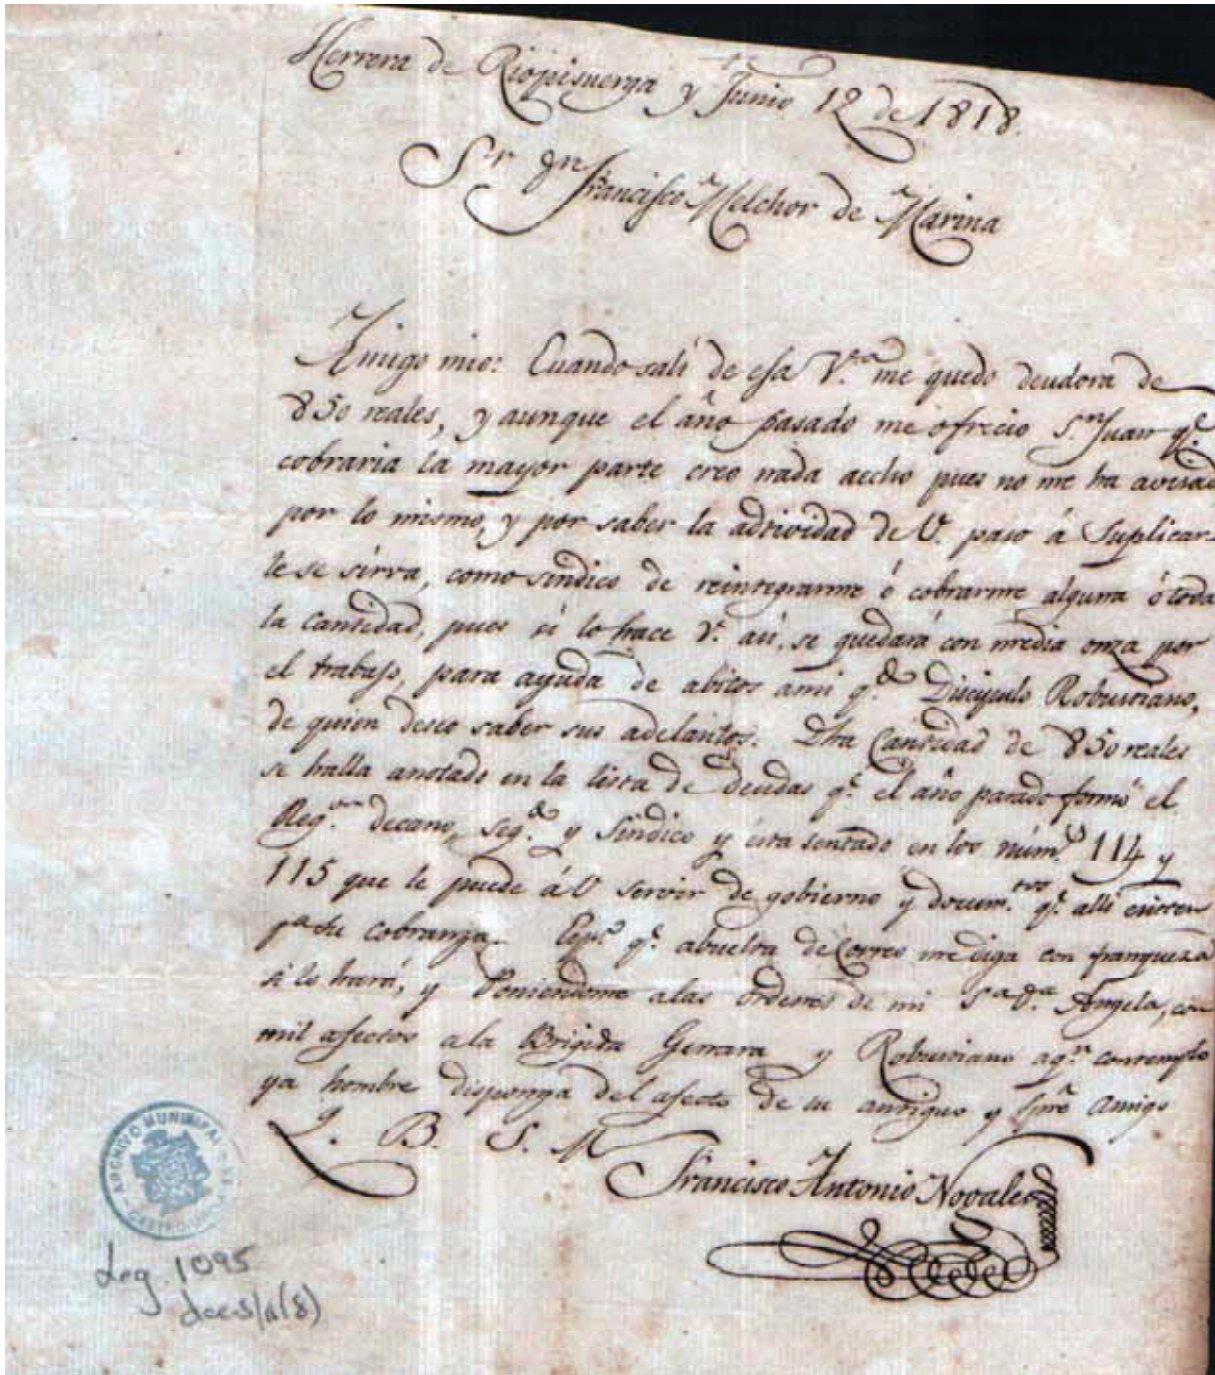 Herrera de Riopisuerga y Junio 12 de 1818.
S.r Dn Francisco Melchor de Marina
Amigo mio: Cuando salí de esa V.a me quedo deudora de
850 reales, y aunque el año pasado me ofrecio S.n Juan q.e
cobraria la mayor parte creo nada aecho pues no me ha avisad
por lo mismo, y por saber la adtividad de V. paso á Suplicar-
le se sirva, como sindico de reintegrarme ó cobrarme alguna ó toda
la Cantidad, pues si lo hace V. asi, se quedará con media onza por
el trabajo, para ayuda de abitos ami q.do Discipulo Robustiano,
de quien deseo saber sus adelantos. Dha Cantidad de 850 reales
se halla anotado en la lista de deudas q.e el año pasado formó el
Reg.or decano, seg.do y Sindico y esta sentado en los núm.s 114 y
115 que le puede á V servir de gobierno y docum.tos q.e allí existen
p.a su cobranza. Esp.o q.e abuelta de Correo me diga con franqueza
si lo hará, y Poniendome alas órdenes de mi S.a D.a Angela, con
mil afectos ala Brigida Genara y Robustiano aq.n contemplo
ya hombre disponga del afecto de su antiguo y Amigo
Q. B. S. M
Francisco Antonio Novales
ARCHIVO MUNICIPAL DE
CASTRO URD
Leg. 1095
doc 5/a(8)